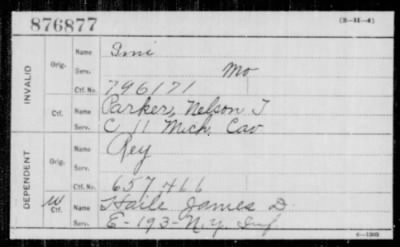 876877 (3-1I-4)
INVALID
Orig. Name
Serv. Mo
Ctf. No. 796171
Ctf. Name Parker, Nelson T
Serv. C 11 Mich. Cav
DEPENDENT
Orig. Name
Serv.
Ctf. No. 657,466
W Ctf. Name Haile James D.
Serv. E-193-N.Y. Inf
6-1303